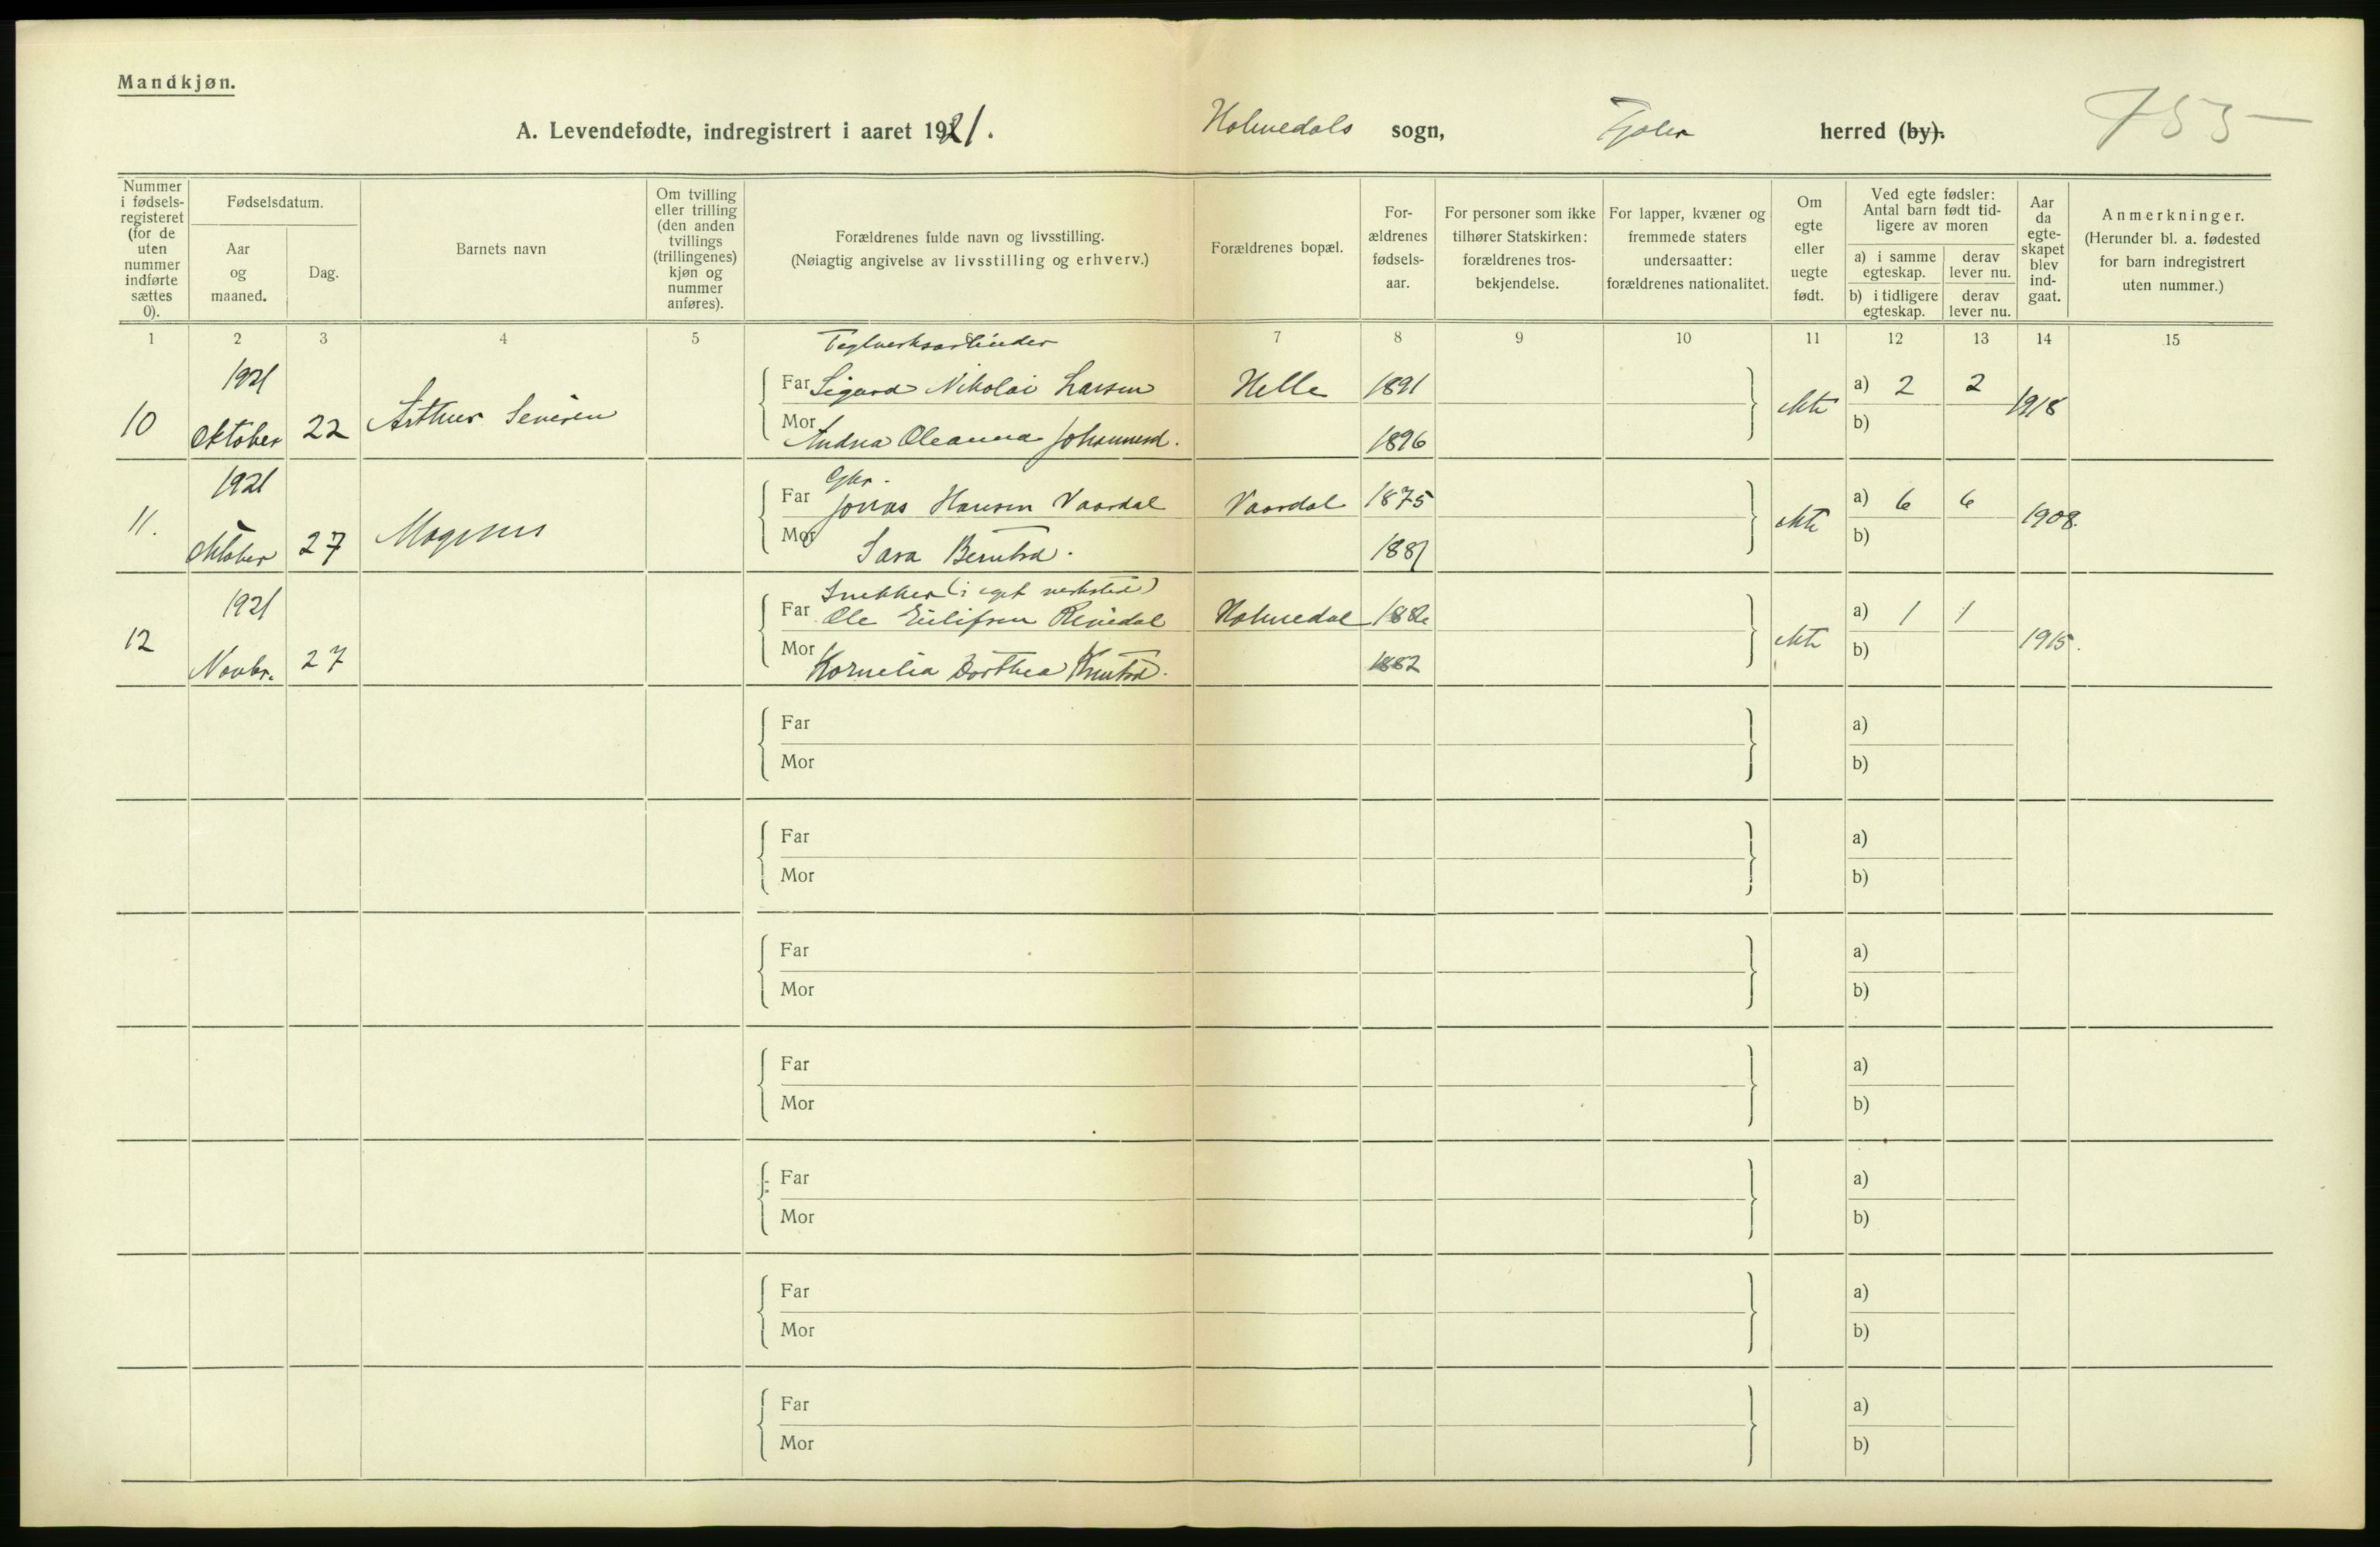 Mandkjøn.
A. Levendefødte, indregistrert i aaret 1921. Holmedals sogn, Fjaler herred (by).
755
Nummer i fødsels-registeret (for de uten nummer indførte sættes 0).
Fødselsdatum.
Aar og maaned.
Dag.
Barnets navn
Om tvilling eller trilling (den anden tvillings (trillingenes) kjøn og nummer anføres).
Forældrenes fulde navn og livsstilling.
(Nøiagtig angivelse av livsstilling og erhverv.)
Forældrenes bopæl.
For-ældrenes fødsels-aar.
For personer som ikke tilhører Statskirken: forældrenes tros-bekjendelse.
For lapper, kvæner og fremmede staters undersaatter: forældrenes nationalitet.
Om egte eller uegte født.
Ved egte fødsler: Antal barn født tid-ligere av moren
a) i samme egteskap.
derav lever nu.
b) i tidligere egteskap.
derav lever nu.
Aar da egte-skapet blev ind-gaat.
Anmerkninger.
(Herunder bl. a. fødested for barn indregistrert uten nummer.)
1 2 3 4 5 7 8 9 10 11 12 13 14 15
Teglverksarbeider
1921 Far Sigurd Nikolai Larsen Helle 1891 a) 2 2
10 Oktober 22 Arthur Severin ekte 1918
Mor Andrea Oleanna Johannesd. 1896 b)
Gbr.
1921 Far Jonas Hansen Vaardal Vaardal 1875 a) 6 6
11. Oktober 27 Magnus ekte 1908.
Mor Sara Berntsd. 1881 b)
Snekker (i eget verksted)
1921 Far Ole Eilifsen Holmedal 188 a) 1 1
12 Novbr. 27 ekte 1915.
Mor Kornelia Dorthea Knutsd. 1882 b)
Far a)
Mor b)
Far a)
Mor b)
Far a)
Mor b)
Far a)
Mor b)
Far a)
Mor b)
Far a)
Mor b)
Far a)
Mor b)